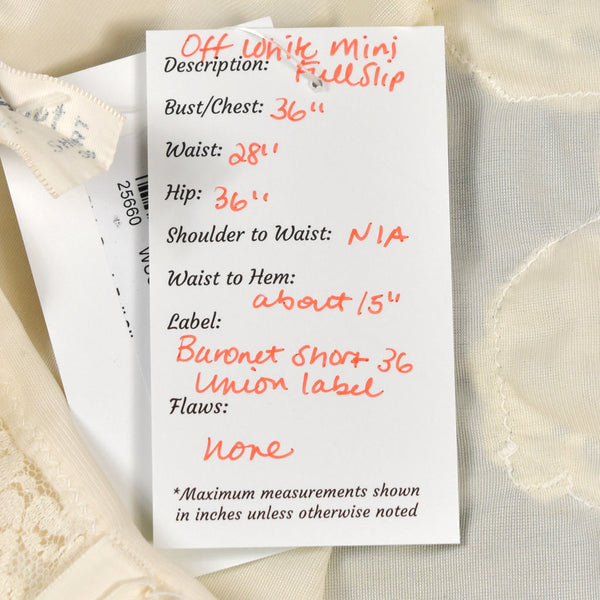 Off White Mini
Description: Full Slip
Bust/Chest: 36"
Waist: 28"
Hip: 36"
Shoulder to Waist: N/A
Waist to Hem:
about 15"
Label:
Baronet Short 36
Union label
Flaws:
none
*Maximum measurements shown
in inches unless otherwise noted
25660